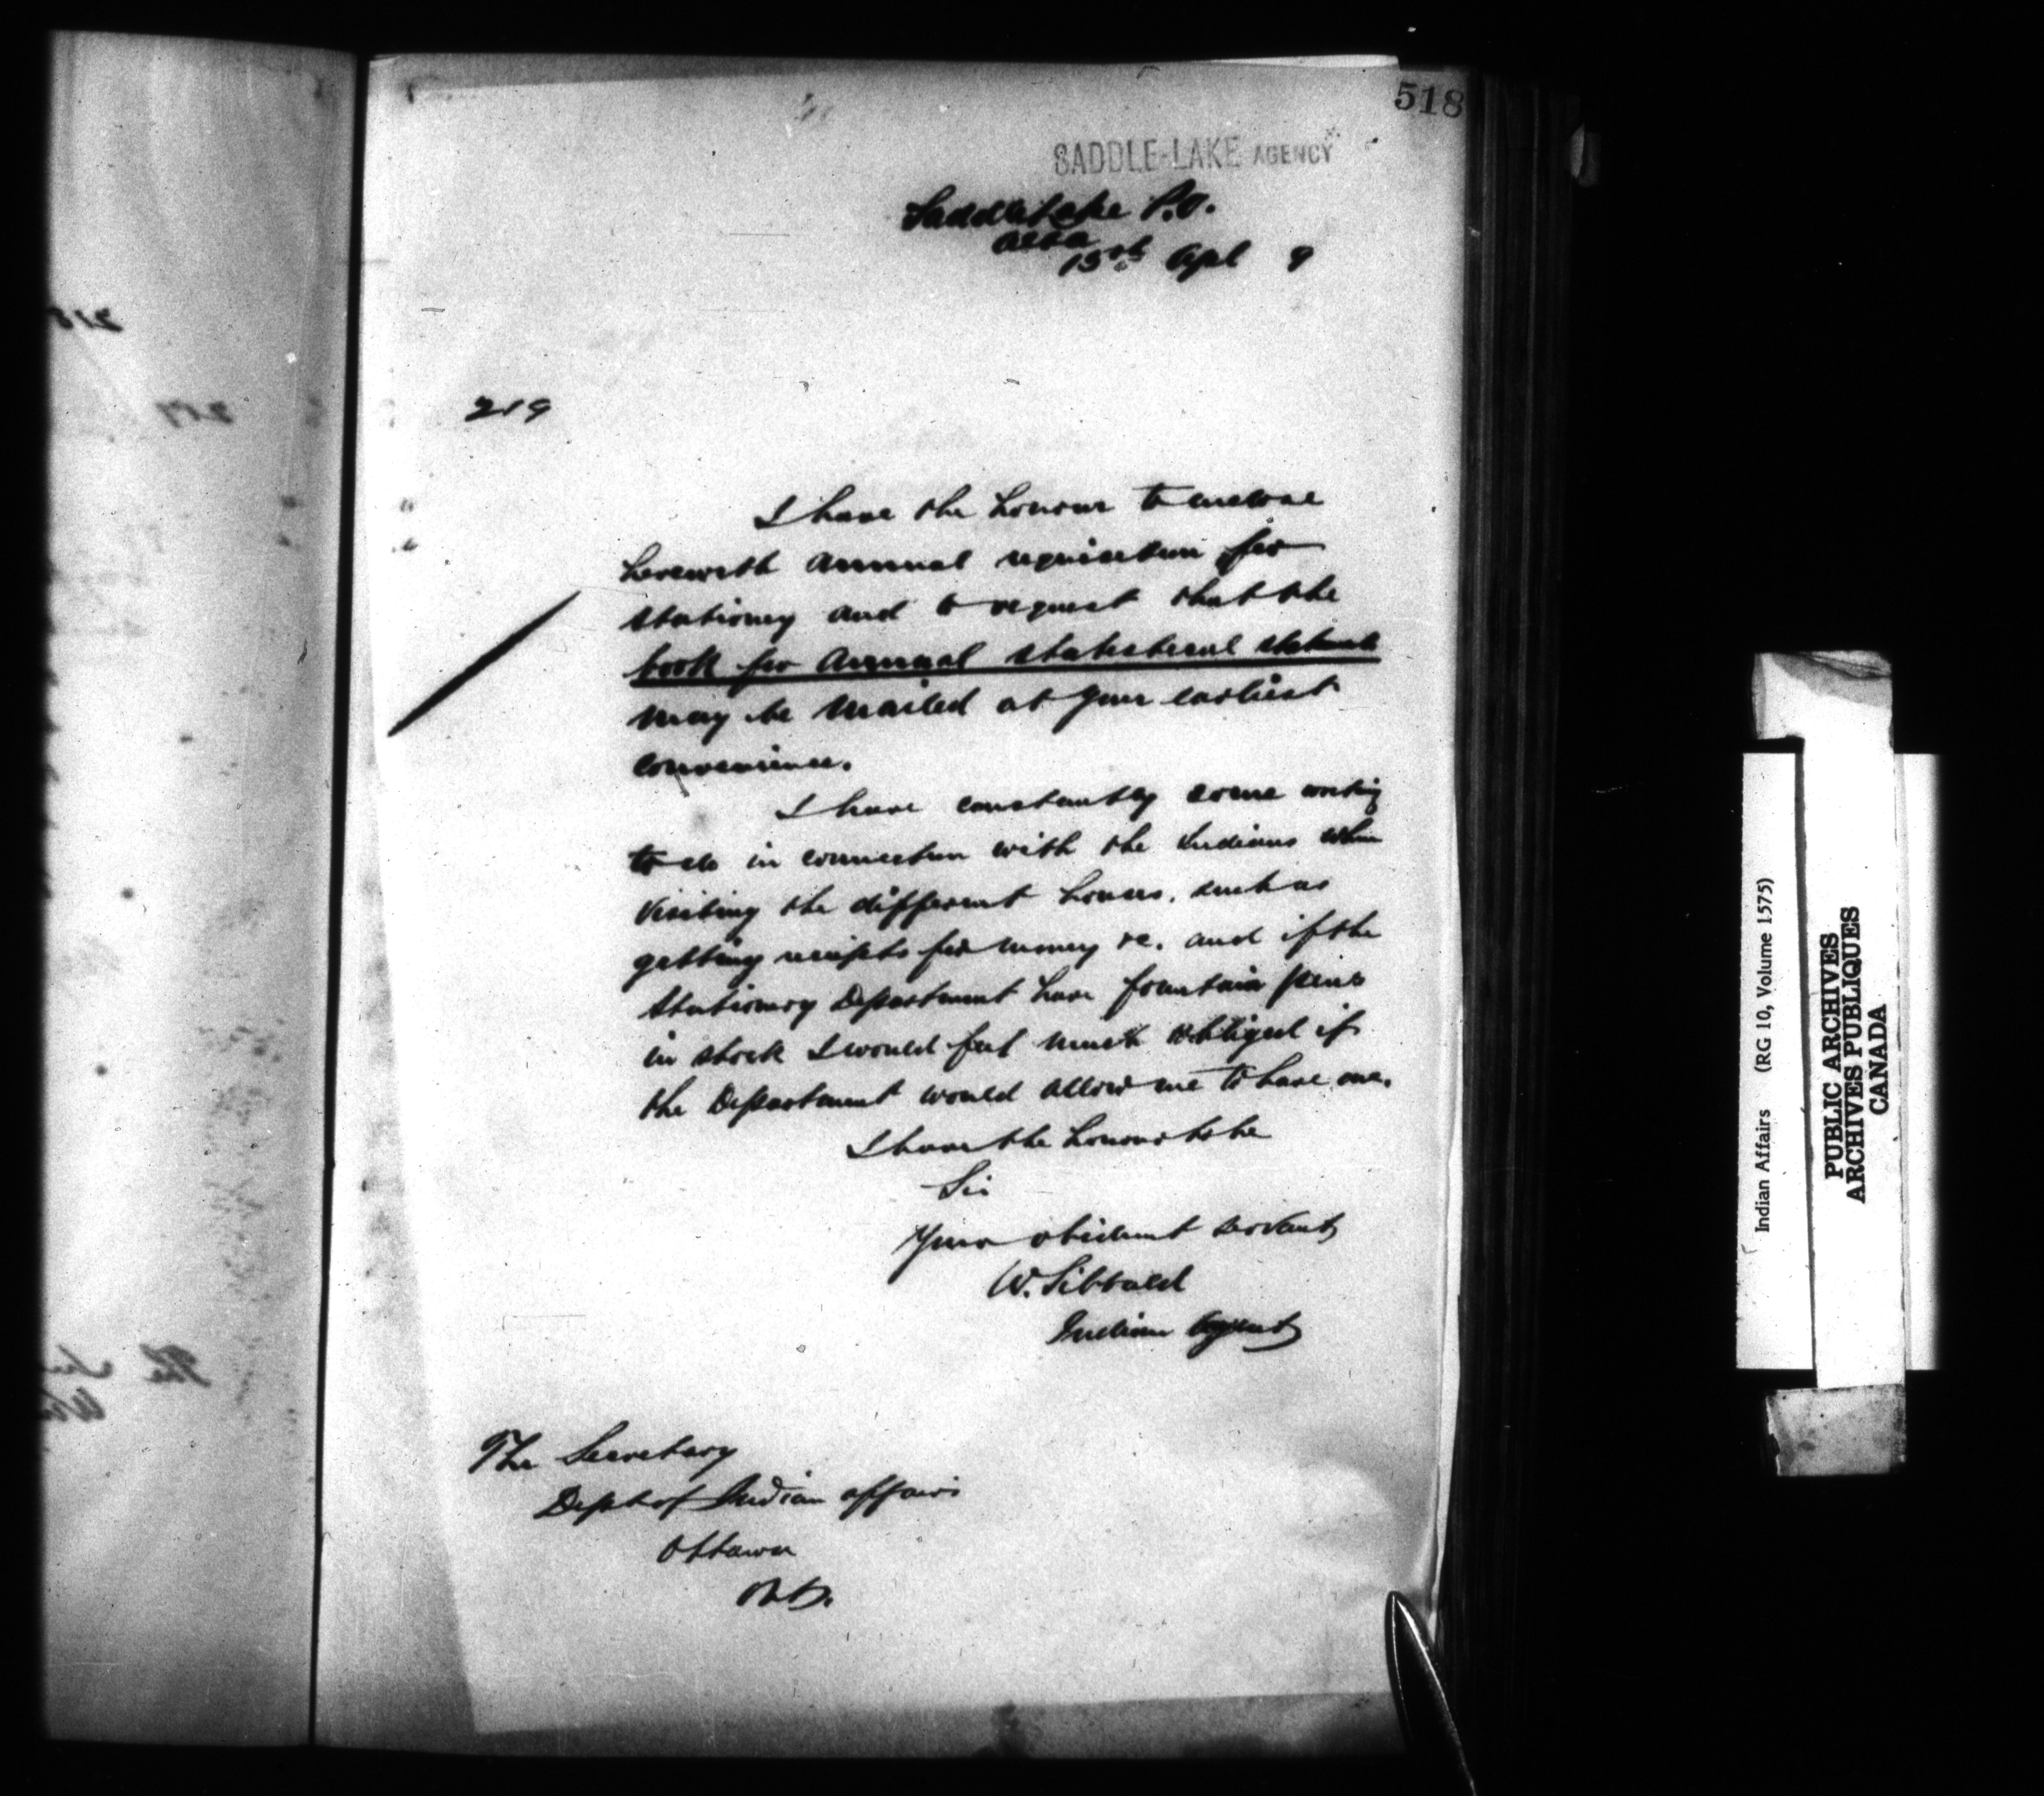 518
SADDLE-LAKE AGENCY
Saddle Lake P.O.
Alta
13th Apl 9
219
I have the honour to enclose
herewith annual requisition for
stationery and to request that the
book for annual statistical statement
may be mailed at your earliest
convenience.
I have constantly some writing
to do in connection with the Indians when
visiting the different houses, such as
getting receipts for money &c. and if the
Stationery Department have fountain pens
in stock I would feel much obliged if
the Department would allow me to have one.
I have the honour to be
Sir
Your obedient servant
W. Sibbald
Indian Agent
The Secretary
Dept of Indian Affairs
Ottawa
218
217
The
Indian Affairs (RG 10, Volume 1575)
PUBLIC ARCHIVES
ARCHIVES PUBLIQUES
CANADA